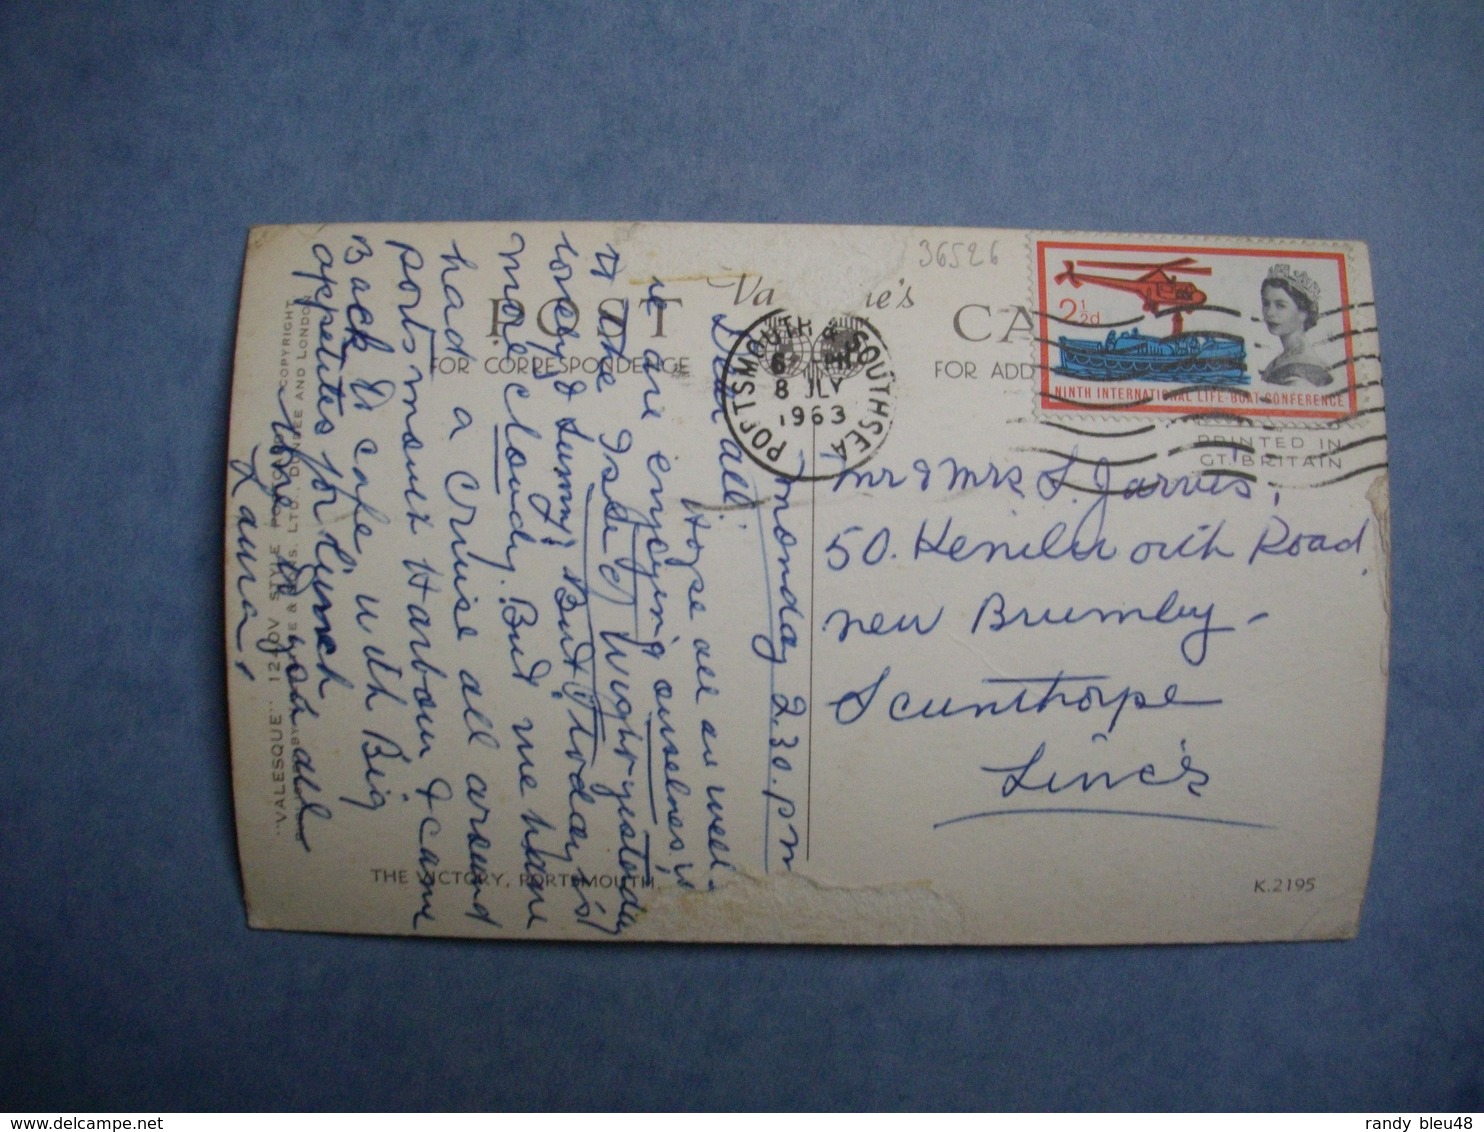 36526
Valentine's
POST CA
FOR CORRESPONDENCE FOR ADD
PORTSMOUTH & SOUTHSEA
6 - PM
8 JLY
1963
2½d
NINTH INTERNATIONAL LIFE-BOAT CONFERENCE
PRINTED IN
GT. BRITAIN
Monday 2.30. pm
Dear all.
Hope all are well.
we are enjoying ourselves,
to the Isle of Wight yesterday
lovely & sunny, But Today is
more cloudy. But we have
had a cruise all around
Portsmouth Harbour & came
Back to cafe with Big
appetites for lunch
you all
Laura,
Mr & Mrs L. Jarvis,
50. Kenilworth Road,
New Brumby -
Scunthorpe
Lincs
"VALESQUE" 12 NOV STYLE POSTCARD COPYRIGHT
& SONS. LTD. DUNDEE AND LONDON
THE VICTORY, PORTSMOUTH
K.2195
randy bleu48